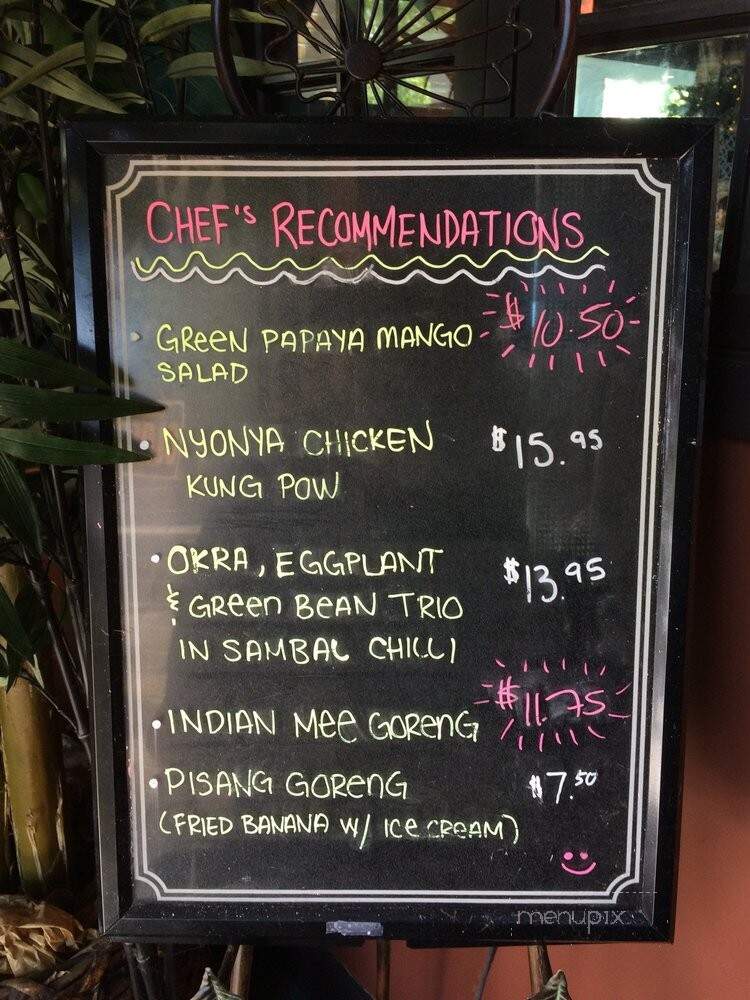 CHEF'S RECOMMENDATIONS
• GREEN PAPAYA MANGO $10.50
SALAD
• NYONYA CHICKEN $15.95
KUNG POW
• OKRA, EGGPLANT $13.95
& GREEN BEAN TRIO
IN SAMBAL CHILLI
• INDIAN MEE GORENG $11.75
• PISANG GORENG $7.50
(FRIED BANANA W/ ICE CREAM)
menupix